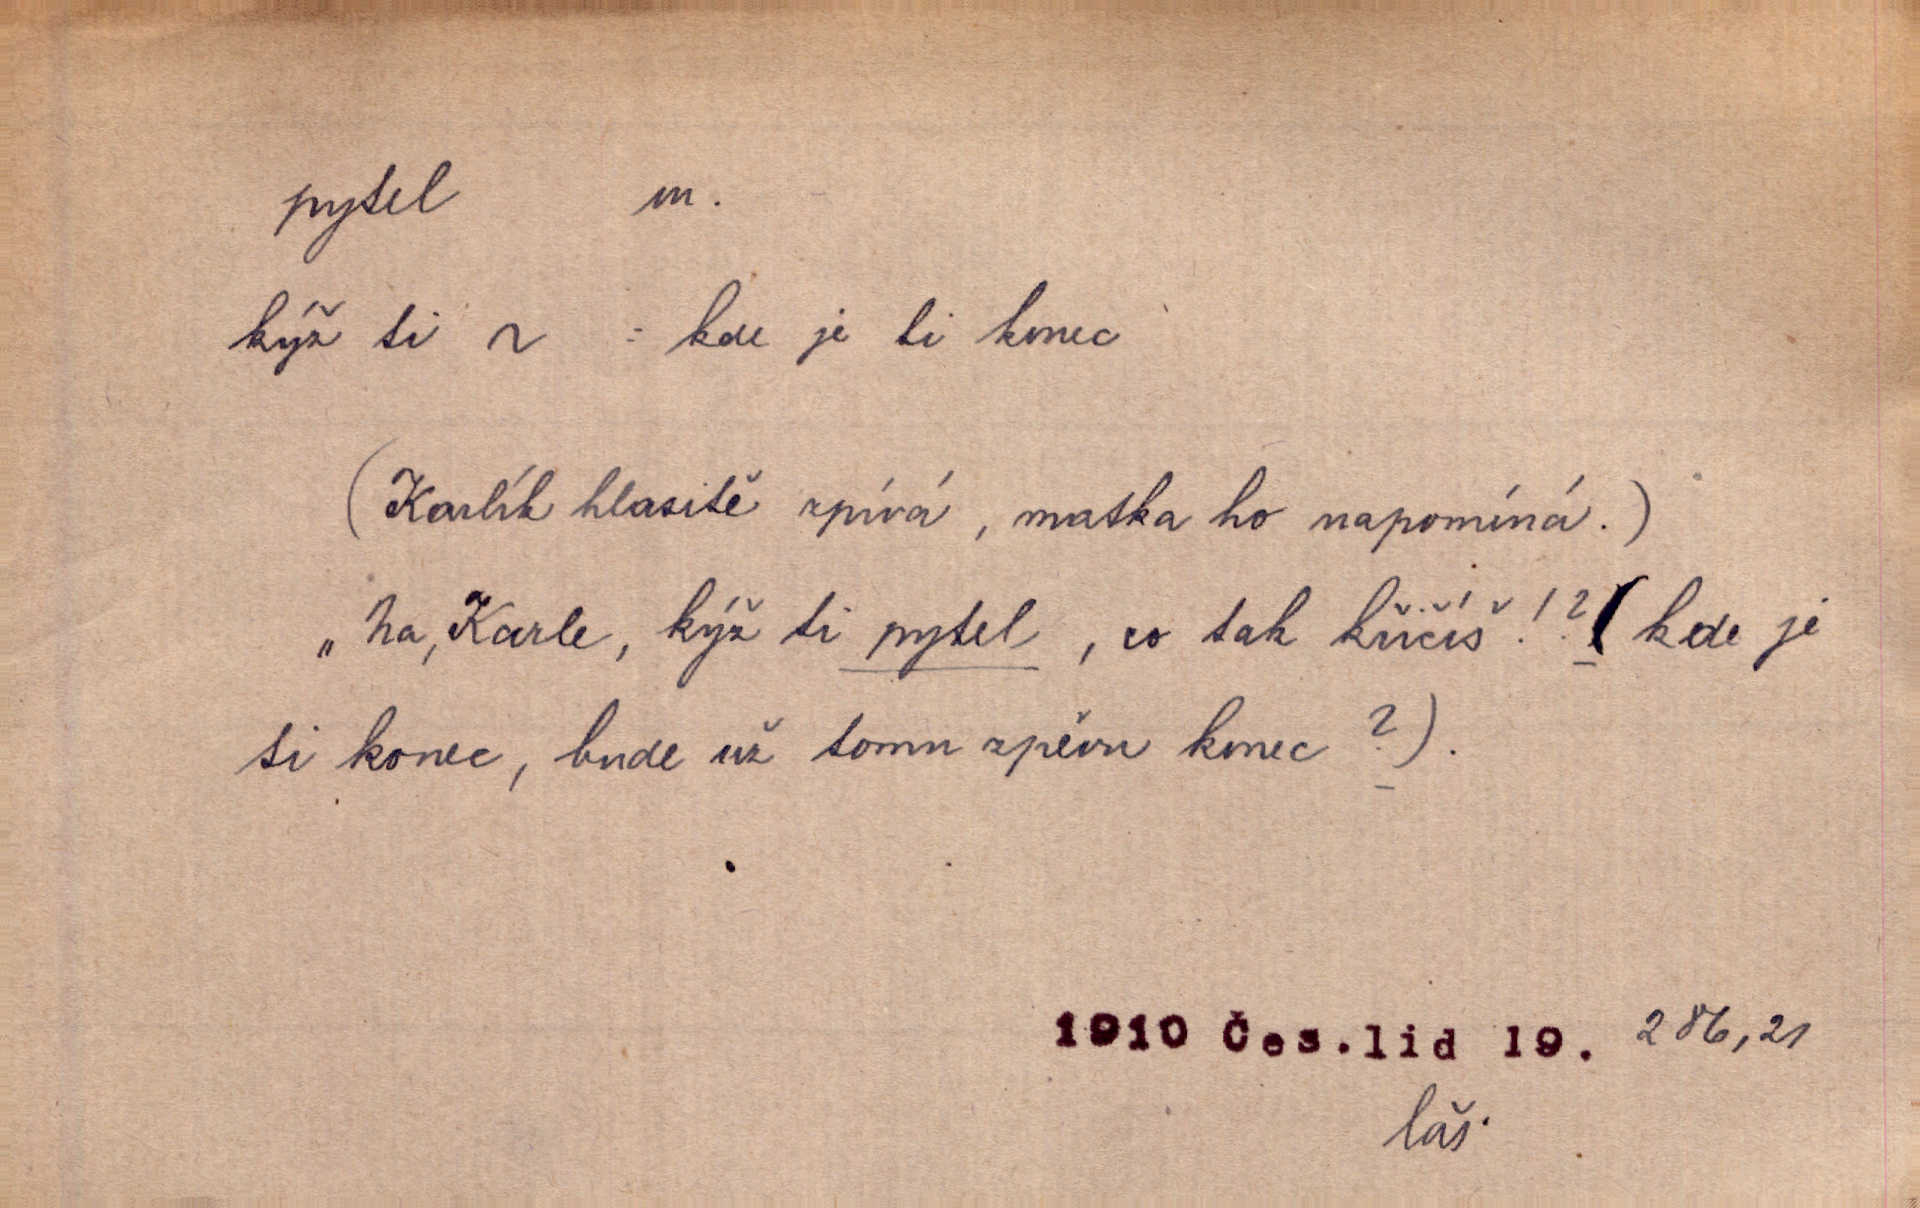 pytel m.
kýž ti ~ : kde je ti konec
(Karlík hlasitě zpívá, matka ho napomíná.)
„Na, Karle, kýž ti pytel, co tak křičíš!? (kde je
ti konec, bude už tomu zpěvu konec?).
1910 Čes.lid 19. 286,21
laš.